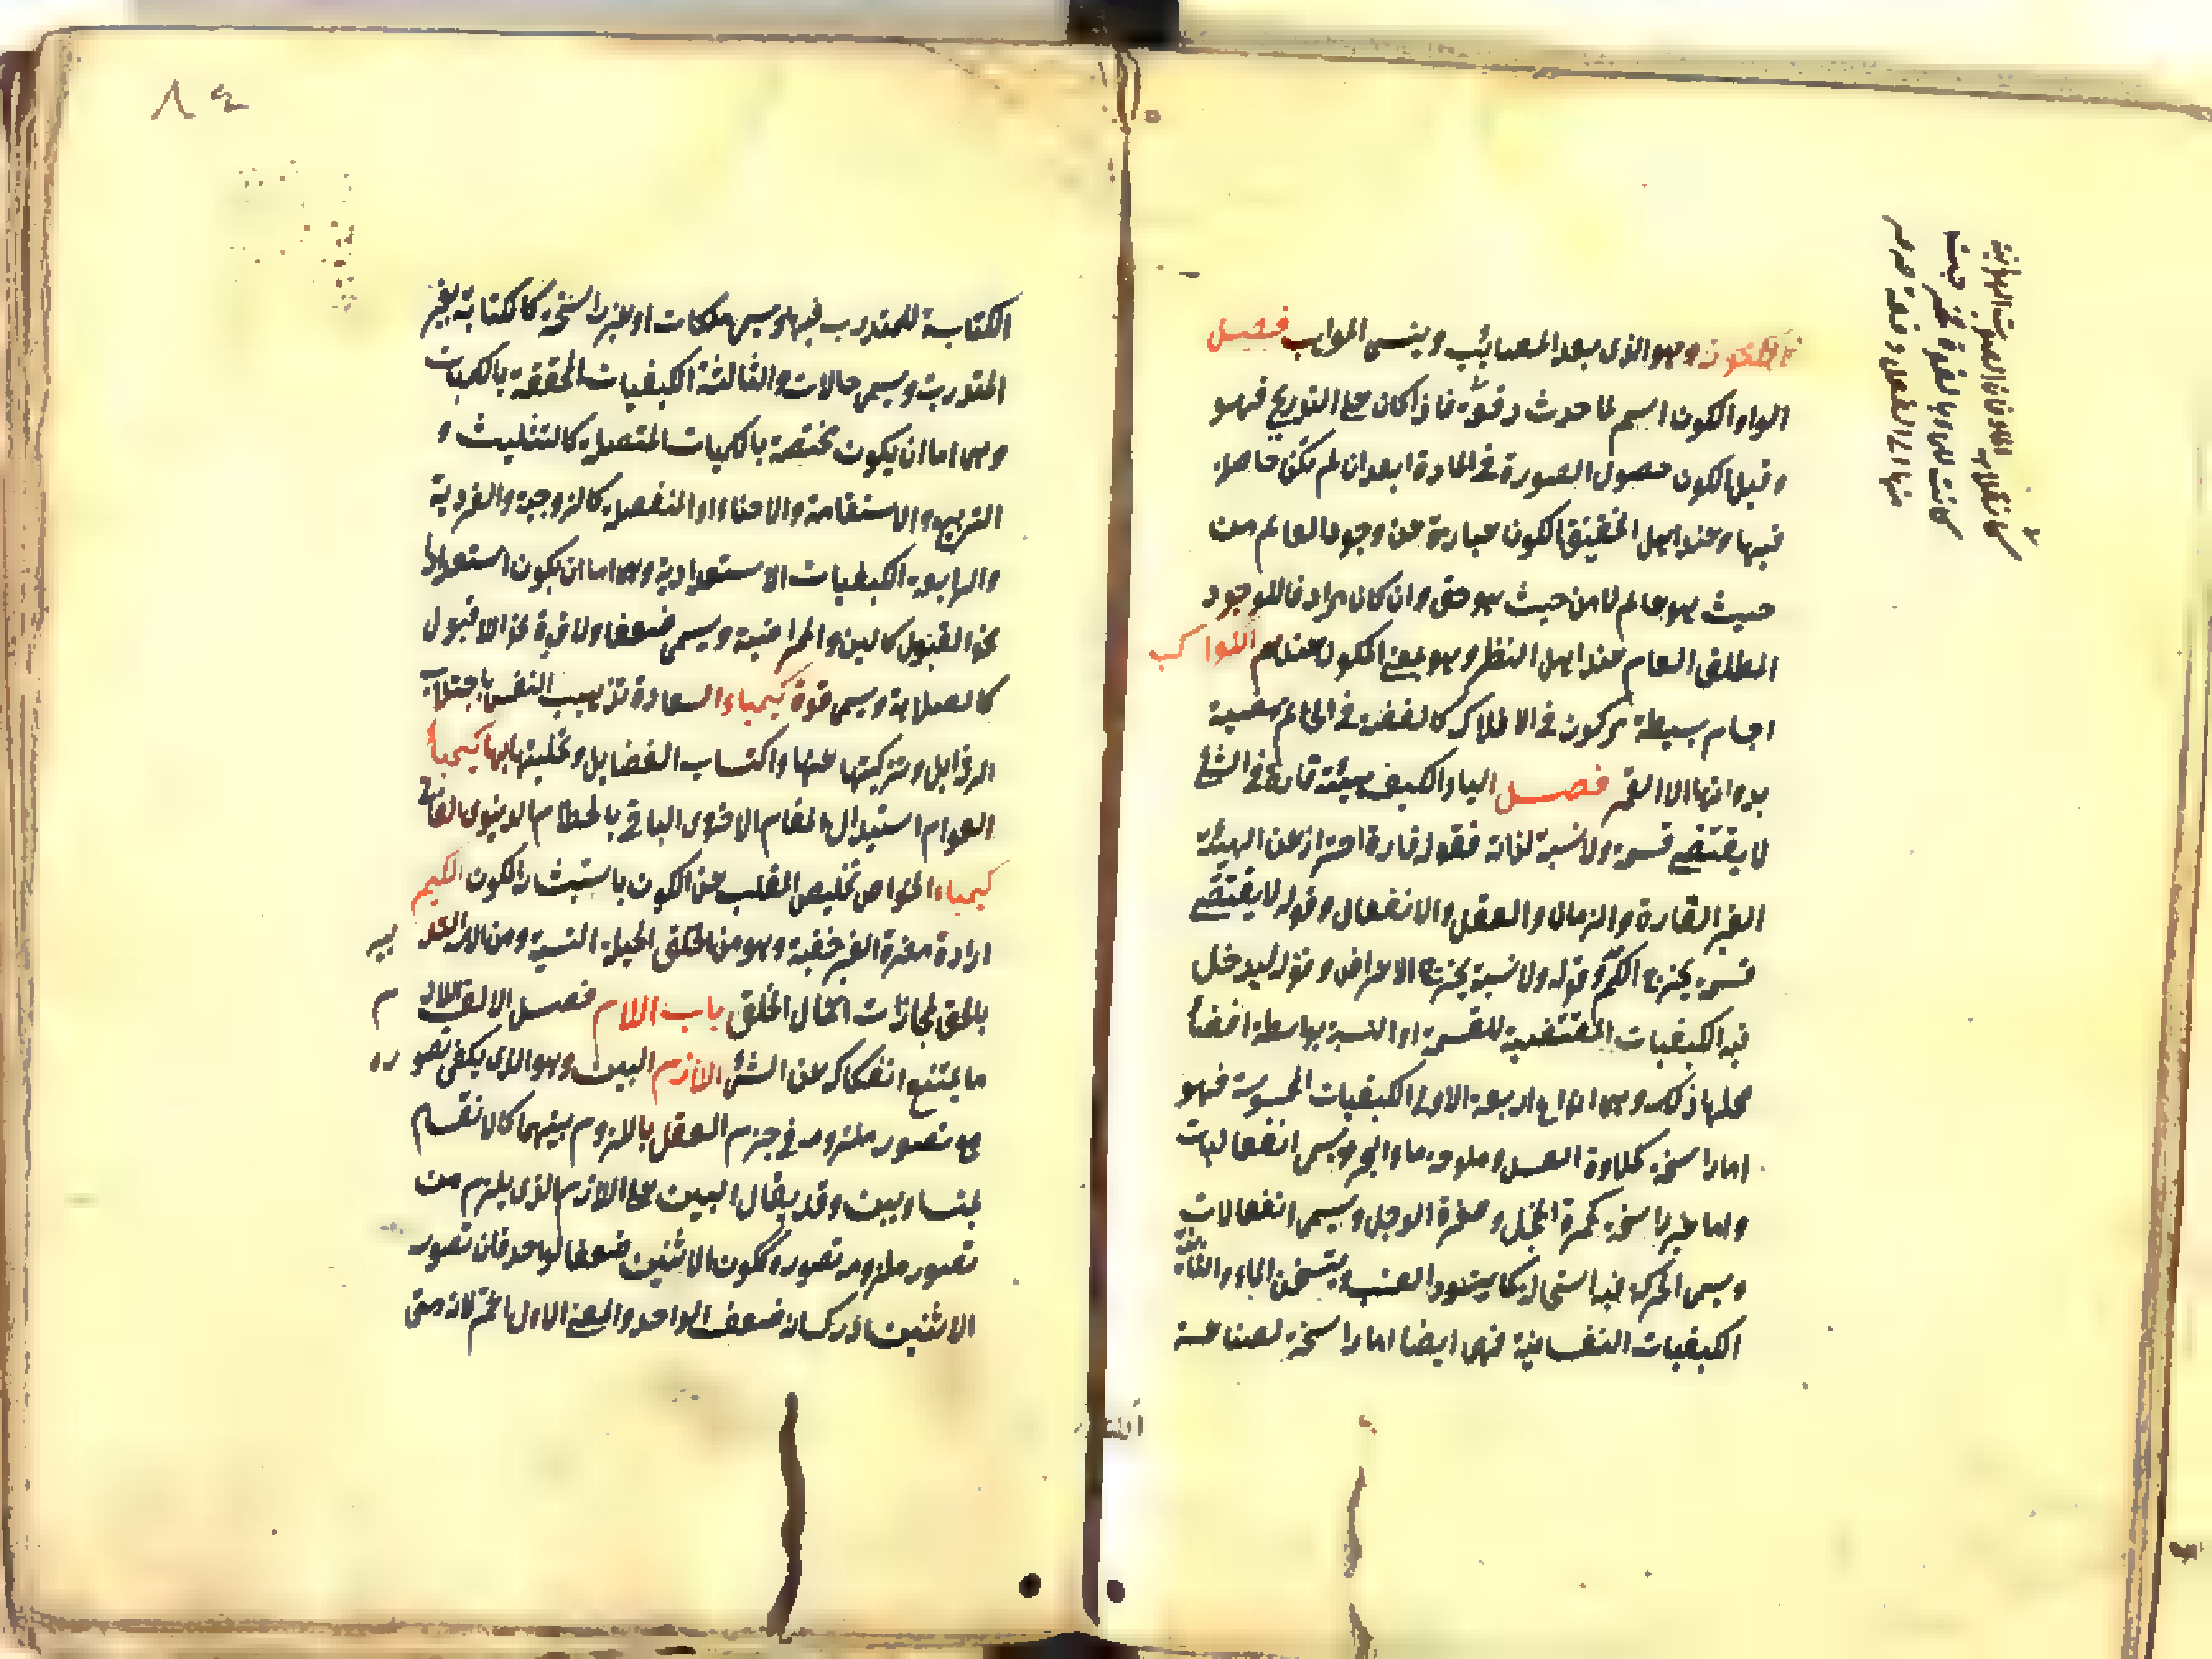 الكنود وهو الذى يعد المصائب وينسى المواهب فصل
الواو الكون اسم لما حدث دفعة فاذا كان على التدريج فهو
وقيل الكون حصول الصورة فى المادة بعد ان لم تكن حاصلة
فيها وعند اهل التحقيق الكون عبارة عن وجود العالم من
حيث هو عالم لا من حيث هو حق وان كان مرادفا للوجود
المطلق العام عند اهل النظر وهو بمعنى المكون عندهم الكواكب
اجسام بسيطة مركوزة فى الافلاك كالفص فى الخاتم مضيئة
بذواتها الا القمر فصل الياء الكيف هيئة قارة فى الشئ
لا يقتضى قسمة ولا نسبة لذاته فقوله قارة احتراز عن الهيئة
الغير القارة والزمان والفعل والانفعال وقوله لا يقتضى
قسمة يخرج الكم وقوله ولا نسبة يخرج الاعراض وقوله ليدخل
فيه الكيفيات المقتضية للقسمة او النسبة بواسطة اقتضاء
محلها ذلك وهى انواع اربعة الاولى الكيفيات المحسوسة فهو
اما راسخة كحلاوة العسل وملوحة ماء البحر ويسمى انفعاليات
واما غير راسخة كحمرة الخجل وصفرة الوجل ويسمى انفعالات
ويسمى الحركة فيه استحالة كما يتسود العنب ويتسخن الماء والثانية
الكيفيات النفسانية فهى ايضا اما راسخة لصناعة
كانقلاب الماء فان الصورة الهوائية
كانت للماء بالقوة فخرجت
منها الى الفعل دفعة
الكتابة للمتدرب فيها ويسمى ملكات او غير راسخة كالكتابة لغير
المتدرب ويسمى حالات والثالثة الكيفيات المختصة بالكميات
وهى اما ان يكون مختصة بالكميات المتصلة كالتثليث و
التربيع والاستقامة والانحناء او المنفصلة كالزوجية والفردية
والرابعة الكيفيات الاستعدادية وهى اما ان يكون استعدادا
نحو القبول كاللين والممراضية ويسمى ضعفا ولا قوة نحو اللا قبول
كالصلابة ويسمى قوة كيمياء السعادة تهذيب النفس باجتناب
الرذايل وتزكيتها عنها واكتساب الفضايل وتحليتها بها كيمياء
العوام استبدال المتاع الاخروى الباقى بالحطام الدنيوى الفانى
كيمياء الخواص تخليص القلب عن الكون باستيثار المكون الكيد
ارادة مضرة الغير خفية وهو من الخلق الحيلة السيئة ومن الله التدبير
بالحق لمجازات اعمال الخلق باب اللام فصل الالف اللازم
ما يمتنع انفكاكه عن الشئ اللازم البين وهو الذى يكفى تصوره
مع تصور ملزومه فى جزم العقل باللزوم بينهما كالانقسام
بمتساويين وقد يقال البين على اللازم الذى يلزم من
تصور ملزومه تصوره ككون الاثنين ضعفا لواحد فان تصور
الاثنين ادرك انه ضعف الواحد والمعنى الاول اعم لانه متى